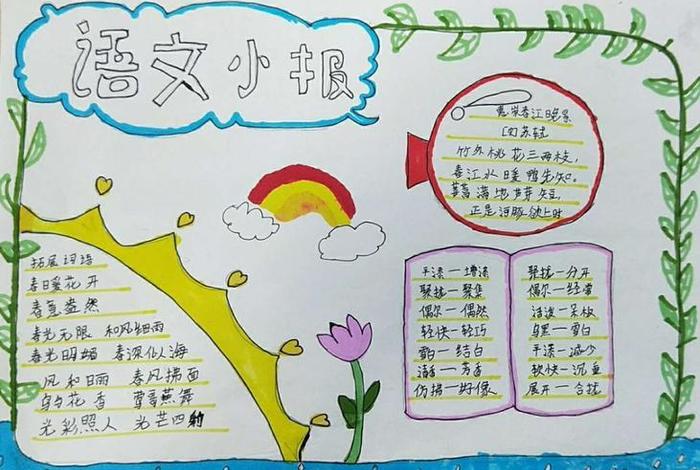 语文小报
拓展词语
春暖花开
春意盎然
春光无限 和风细雨
春光明媚 春深似海
风和日丽 春风拂面
鸟语花香 莺歌燕舞
光彩照人 光芒四射
惠崇春江晚景
[宋]苏轼
竹外桃花三两枝，
春江水暖鸭先知。
蒌蒿满地芦芽短，
正是河豚欲上时
平添—增添
聚拢—聚集
偶尔—偶然
轻快—轻巧
雪白—结白
清香—芳香
仿拂—好像
聚拢—分开
偶尔—经常
活泼—呆板
乌黑—雪白
平添—减少
轻快—沉重
展开—合拢